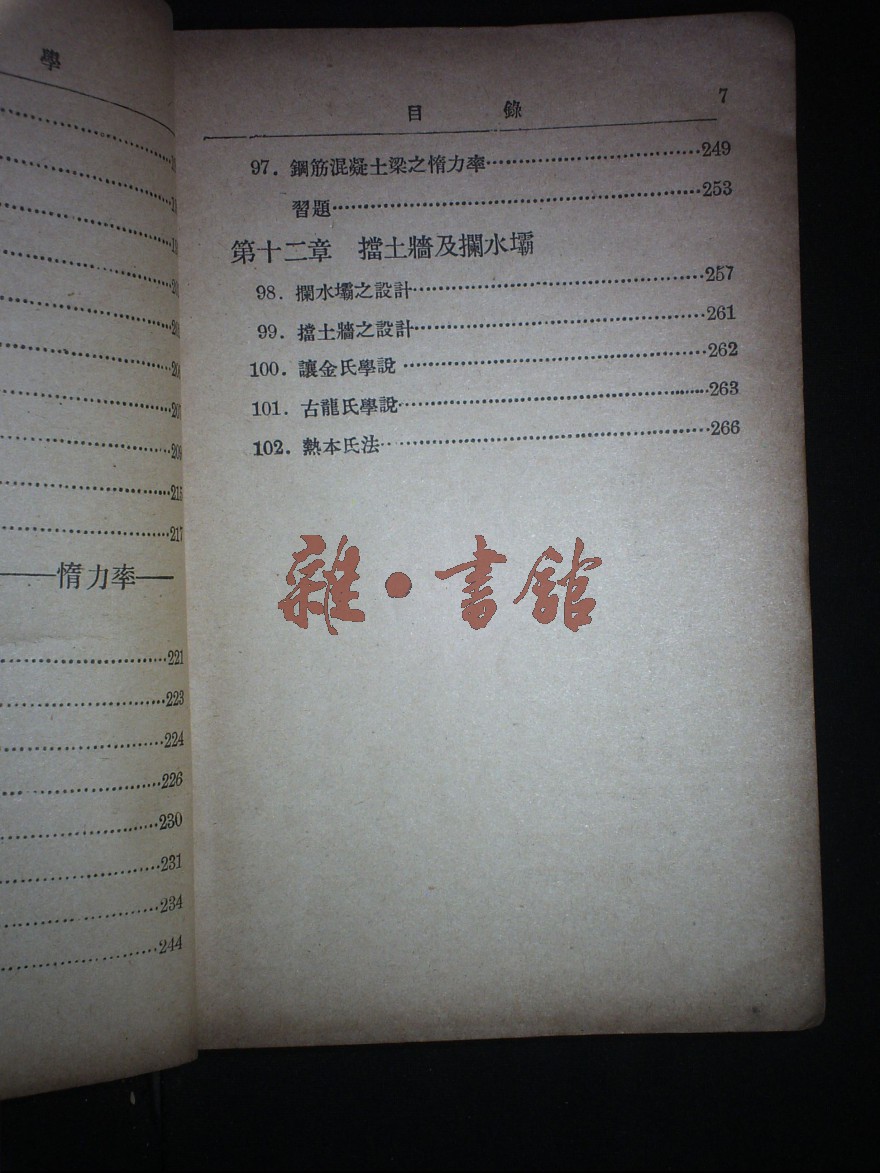 學
217
惰力率
221
223
224
226
230
231
234
244
目 錄 7
97. 鋼筋混凝土梁之惰力率 249
習題 253
第十二章 擋土牆及攔水壩
98. 攔水壩之設計 257
99. 擋土牆之設計 261
100. 讓金氏學說 262
101. 古龍氏學說 263
102. 熱本氏法 266
雜·書館